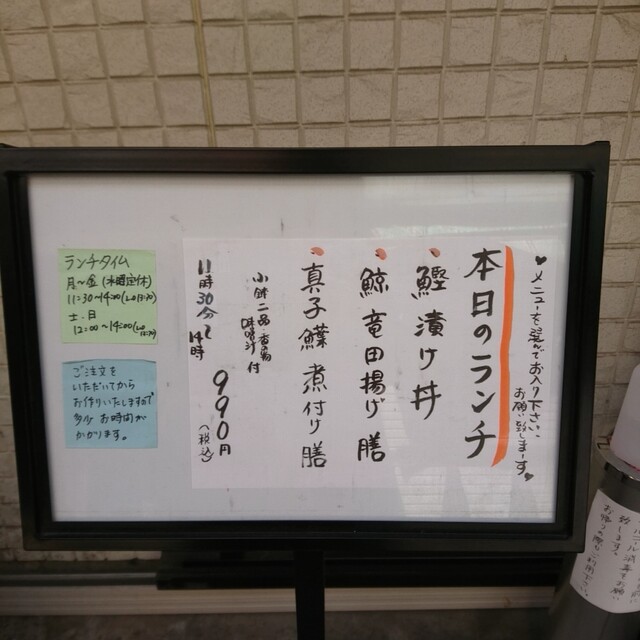 ♥メニューを選んでお入り下さい
お願い致しまーす♥
本日のランチ
鰹漬け丼
鯨竜田揚げ膳
真子鰈煮付け膳
小鉢二品・香物
味噌汁付
990円(税込)
11時30分〜14時
ランチタイム
月〜金(木曜定休)
11:30〜14:00(LO 13:30)
土・日
12:00〜14:00(LO 13:30)
ご注文を
いただいてから
お作りいたしますので
多少お時間が
かかります。